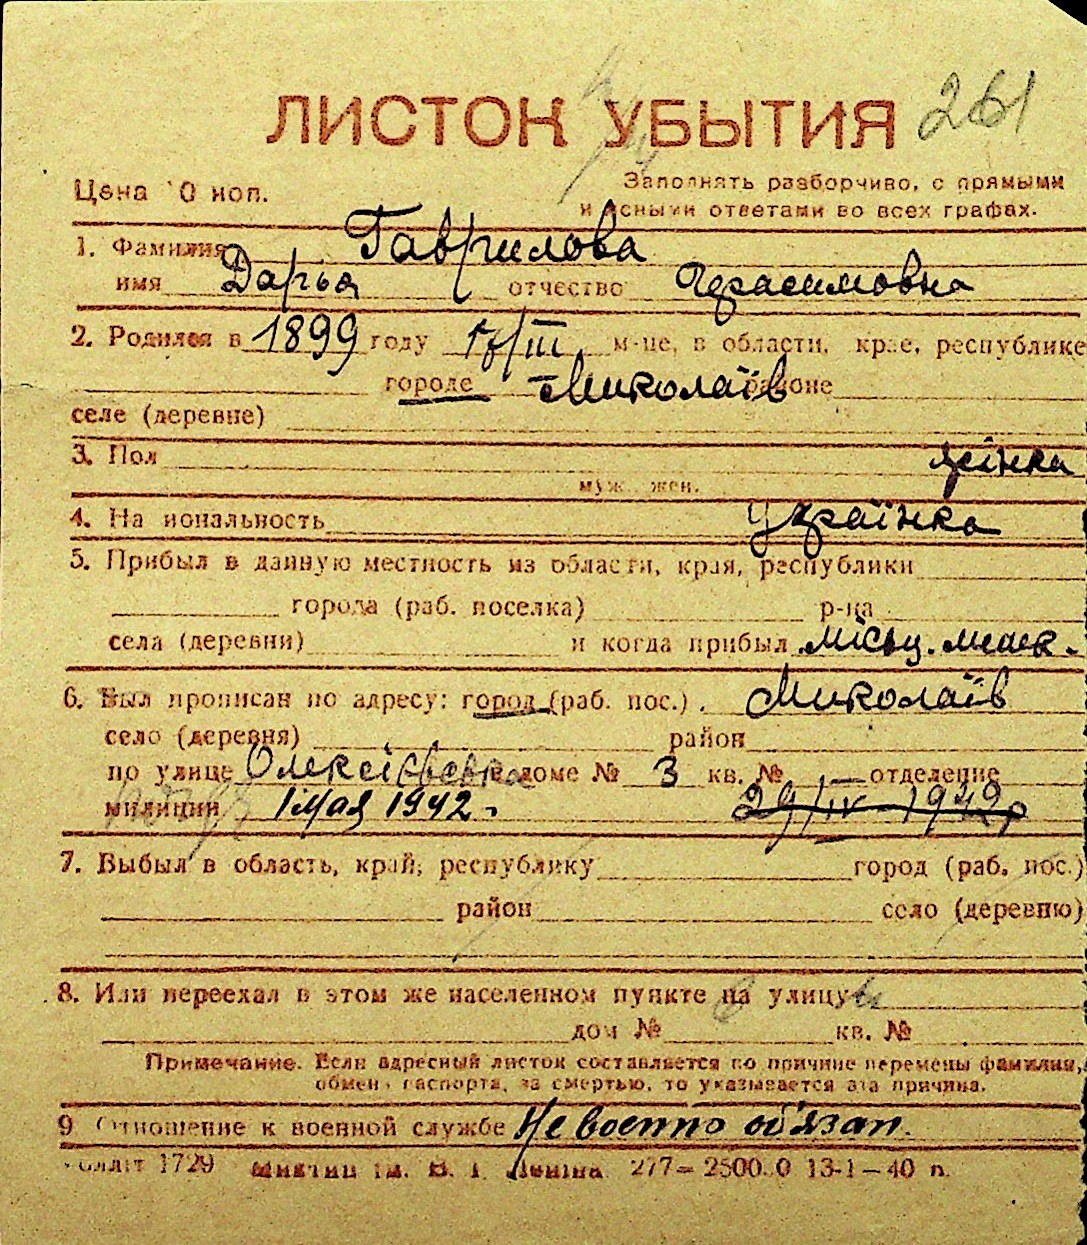 ЛИСТОК УБЫТИЯ 261
Цена 10 коп.
Заполнять разборчиво, с прямыми
и ясными ответами во всех графах.
1. Фамилия Гаврилова
имя Дарья отчество Герасимовна
2. Родился в 1899 году /III м-це, в области, крае, республике
городе Миколаїв районе
селе (деревне)
3. Пол жінка
муж. жен.
4. Национальность Українка
5. Прибыл в данную местность из области, края, республики
города (раб. поселка) р-на
села (деревни) и когда прибыл місц. мешк.
6. Был прописан по адресу: город (раб. пос.) Миколаїв
село (деревня) район
по улице Олексієвська в доме № 3 кв. № отделение
милиции 1 мая 1942 29/IV 1942 р
7. Выбыл в область, край, республику город (раб. пос.)
район село (деревню)
8. Или переехал в этом же населенном пункте на улицу
дом № кв. №
Примечание. Если адресный листок составляется по причине перемены фамилии,
обмена паспорта, за смертью, то указывается эта причина.
9 Отношение к военной службе Не военно об'язан.
1729 им. В. І. Леніна 277— 13-1—40 п.